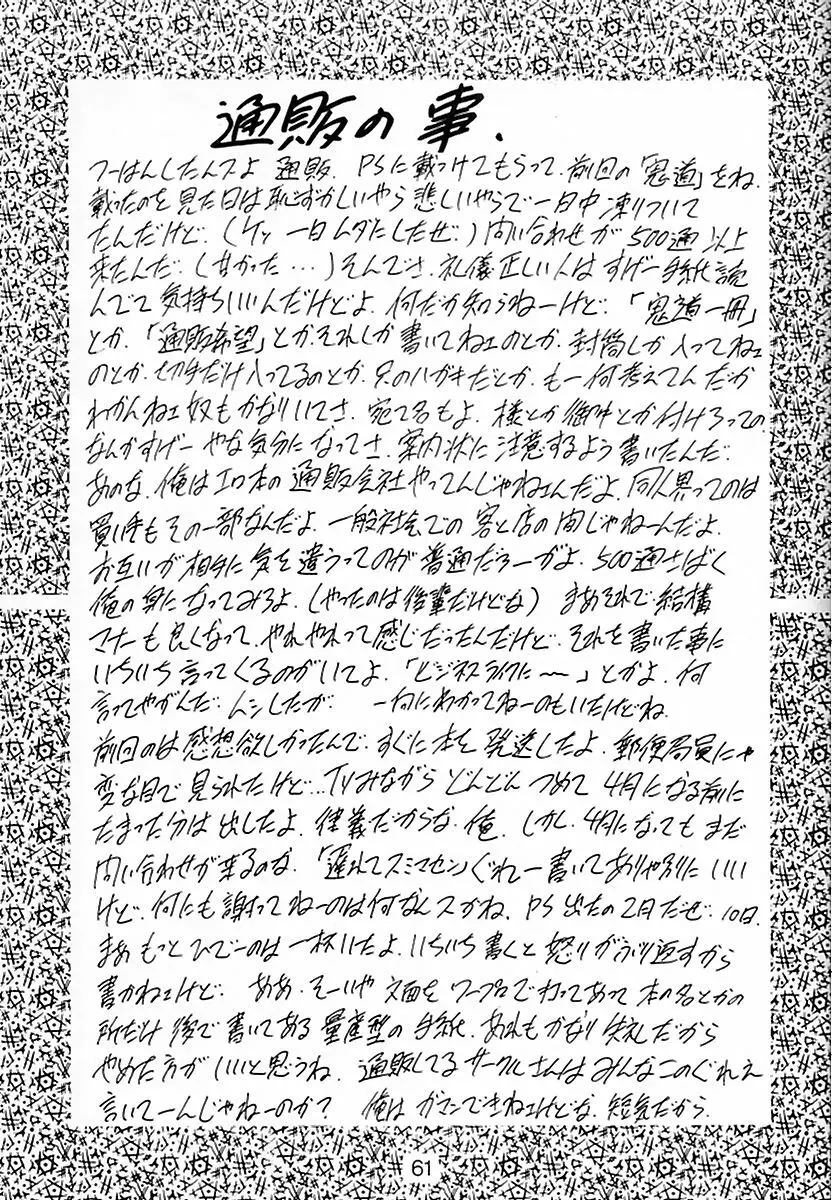 通販の事.
つーはんしたんスよ 通販. PSに載っけてもらって. 前回の「鬼道」をね.
載ったのを見た日は恥ずかしいやら悲しいやらで一日中凍りついて
たんだけど. (ケッ 一日ムダにしたぜ.) 問い合わせが500通以上
来たんだ. (甘かった…) そんでさ. 礼儀正しい人はすげー手紙読
んでて気持ちいいんだけどよ. 何だか知らねーけど. 「鬼道一冊」
とか.「通販希望」とかそれしか書いてねェのとか. 封筒しか入ってねェ
のとか. 切手だけ入ってるのとか. 只のハガキだとか. もー何考えてんだか
わかんねェ奴もかなりいてさ. 宛て名もよ. 様とか御中とか付けろっての.
なんかすげー やな気分になってさ. 案内状に注意するよう書いたんだ.
あのな. 俺はエロ本の通販会社やってんじゃねェんだよ. 同人界ってのは
買い手もその一部なんだよ. 一般社会での客と店の間じゃねーんだよ.
お互いが相手に気を遣うってのが普通だろーがよ. 500通さばく
俺の身になってみろよ. (やったのは後輩だけどな) まあそれで結構
マナーも良くなって. やれやれって感じだったんだけど. それを書いた事に
いちいち言ってくるのがいてよ. 「ビジネスライクに〜」とかよ. 何
言ってやがんだ. ムシしたが. 一向にわかってねーのもいたけどね.
前回のは感想欲しかったんで. すぐに本を発送したよ. 郵便局員にゃ
変な目で見られたけど…TVみながら どんどん つめて 4月になる前に
たまった分は出したよ. 律義だからな. 俺. しかし. 4月になってもまだ
問い合わせが来るのな. 「遅れてスミマセン」ぐれー書いてありゃ別にいい
けど. 何にも謝ってねーのは何なんスかね. PS出たの2月だぜ. 10日.
まあ もっとひでーのは一杯いたよ. いちいち書くと怒りがぶり返すから
書かねェけど. ああ. そーいや 文面をワープロで打ってあって 本の名とかの
所だけ後で書いてある量産型の手紙. あれもかなり失礼だから
やめた方がいいと思うね. 通販してるサークルさんはみんなこのぐれえ
言いてーんじゃねーのか? 俺はガマンできねェけどな. 短気だから.
61